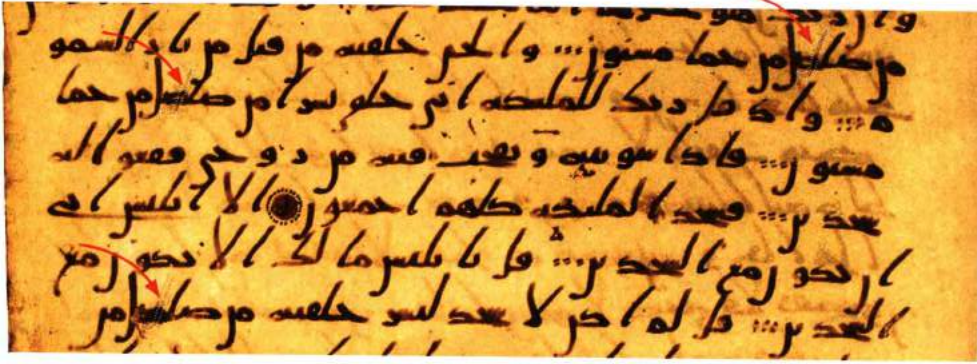 من صلصل من حما مسنون والجن خلقنه من قبل من نار السمو
م واذ قل ربك للملئكة اني خلق بشرا من صلصل من حما
مسنون فاذا سويته ونفخت فيه من روحي فقعوا له
سجدين فسجد الملئكة كلهم اجمعون الا ابليس ابى
ان يكون مع السجدين قل يابليس ما لك الا تكون مع
السجدين قل لم اكن لاسجد لبشر خلقته من صلصل من